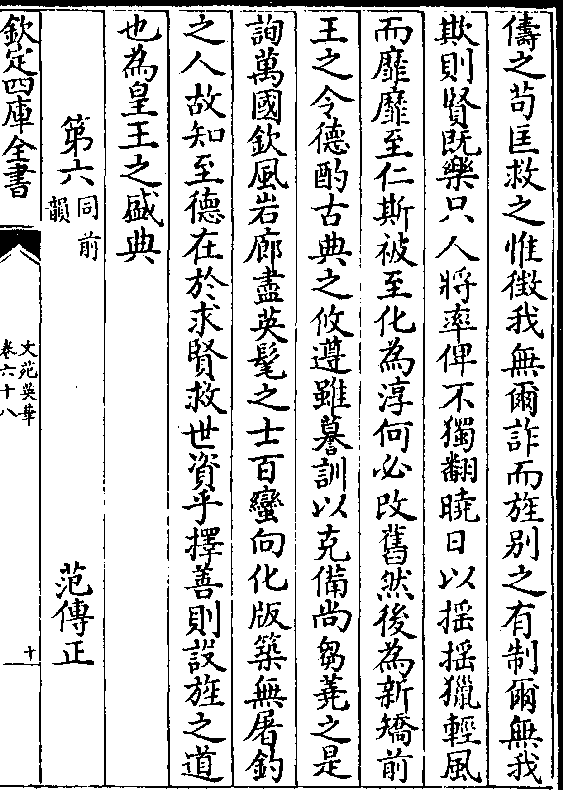 儔之苟匡救之惟徴我無爾詐而旌别之有制爾無我
欺則賢既樂只人將率俾不獨翻曉日以揺揺獵輕風
而靡靡至仁斯被至化為淳何必改舊然後為新矯前
王之令德酌古典之攸遵雖謩訓以克備尚芻蕘之是
詢萬國欽風岩廊盡英髦之士百蠻向化版築無屠釣
之人故知至德在於求賢救世資乎擇善則設旌之道
也為皇王之盛典
第六同前韻 范傳正
欽定四庫全書
文苑英華
卷六十八
十